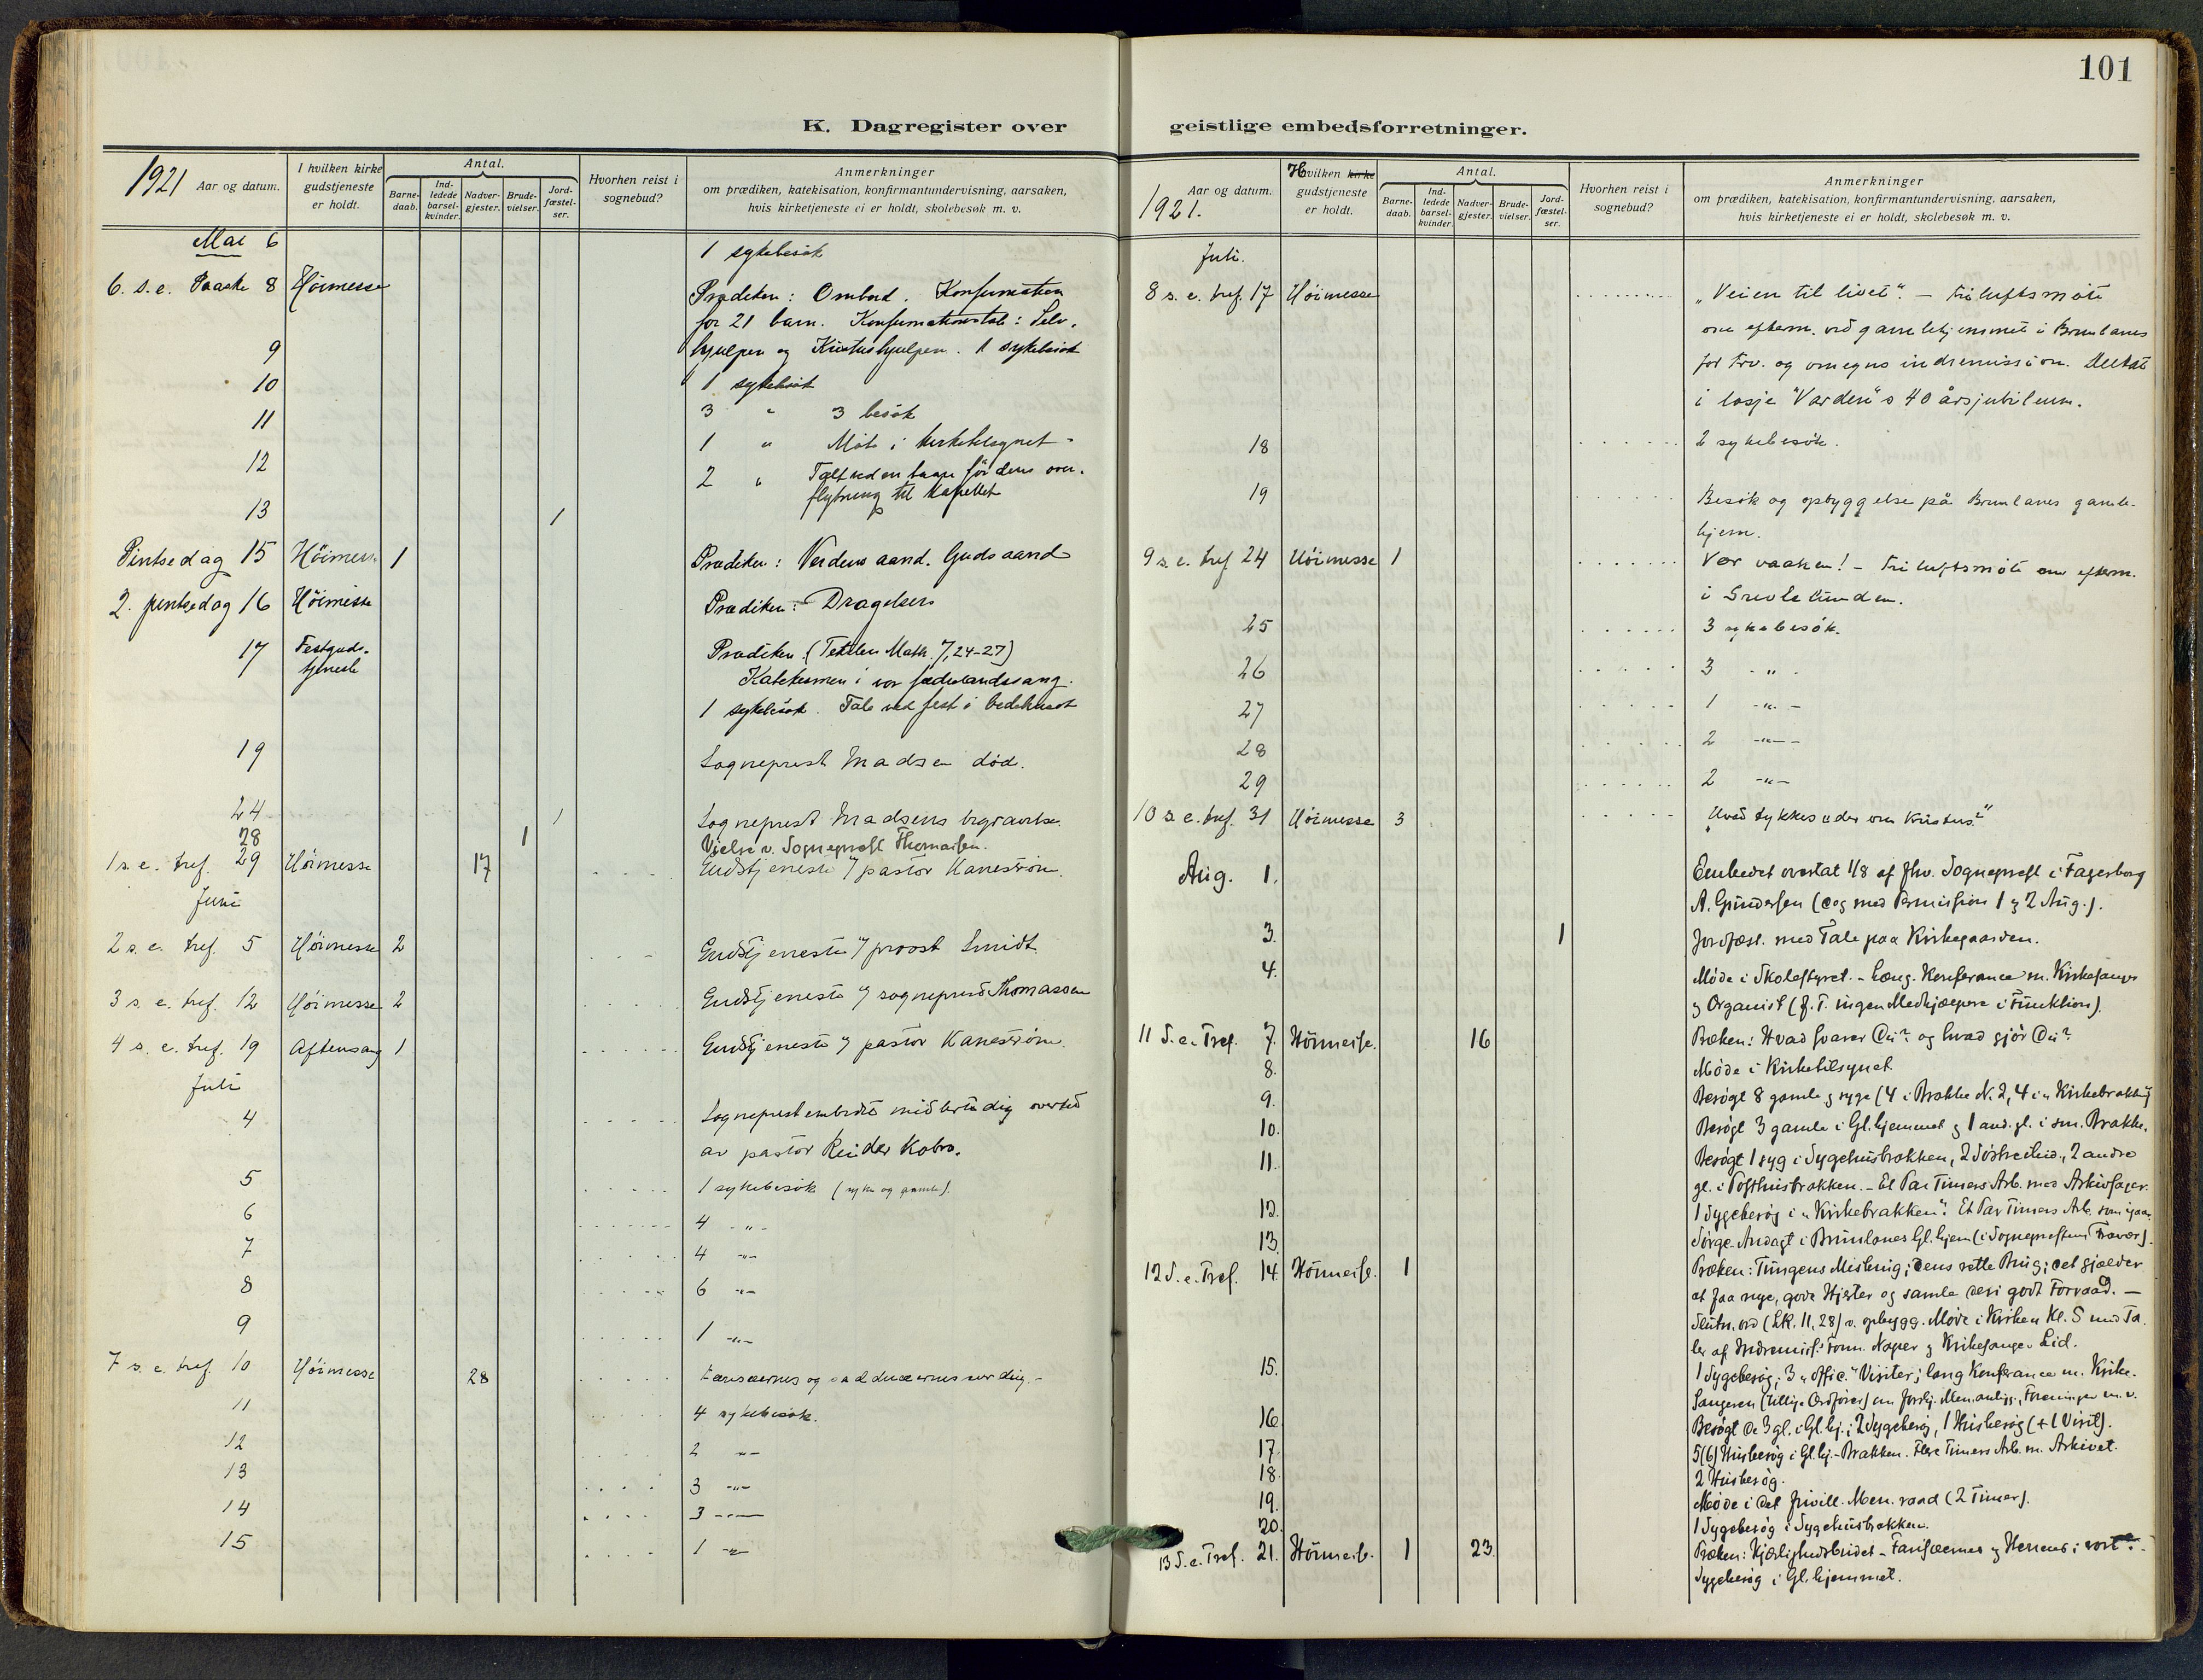 101
K. Dagregister over
geistlige embedsforretninger.
1921 Aar og datum.
I hvilken kirke gudstjeneste er holdt.
Antal.
Barne-daab.
Ind-ledede barsel-kvinder.
Nadver-gjester.
Brude-vielser.
Jord-fæstel-ser.
Hvorhen reist i sognebud?
Anmerkninger
om prædiken, katekisation, konfirmantundervisning, aarsaken,
hvis kirketjeneste ei er holdt, skolebesøk m. v.
Mai 6 1 sykebesök
6. s.e. Paaske 8 Höimesse Prædiken: Ombud. Konfirmation
for 21 barn. Konfirmationstale: Selv-
hjulpen og Kristushjulpen. 1 sykebesök
9
10 1 sykebesök
3 " 3 besök
11 1 " Möte i kirketilsynet
12 2 " Talt ved en baare för dens over-
flytning til kapellet
13 1
Pintsedag 15 Höimesse 1 Prædiken: Verdens aand. Guds aand
2. pintsedag 16 Höimesse Prædiken: Dragelsen
17 Festguds-
tjeneste
Prædiken (Teksten Math. 7,24-27)
Katekismen i vor fædrelandssang.
1 sykebesök. Tale ved fest i bedehuset
19 Sogneprest Madsen död.
24 1 Sogneprest Madsens begravelse.
28 1 Vielse v. Sogneprest Thomassen.
1 s.e. tref. 29 Höimesse 17 Gudstjeneste v/ pastor Kaneström.
Juni
2 s.e. tref. 5 Höimesse 2 Gudstjeneste v/ proost Smidt.
3 s.e. tref. 12 Höimesse 2 Gudstjeneste v/ sogneprest Thomassen
4 s.e. tref. 19 Aftensang 1 Gudstjeneste v/ pastor Kaneström.
Juli
4 Sogneprestembedet midlertidig overtat
av pastor Reidar Kobro.
5 1 sykebesök (syke og gamle).
6 4 - " -
7 4 -"-
8 6 -"-
9 1 -"-
7 s.e. tref. 10 Höimesse 28 Farisæernes og sadducæernes surdeig.-
11 4 sykebesök.
12 2 -"-
13 3 -"-
14 3 -"-
15 1 -"-
1921.
Aar og datum.
Hvilken kirke gudstjeneste er holdt.
Antal.
Barne-daab.
Ind-ledede barsel-kvinder.
Nadver-gjester.
Brude-vielser.
Jord-fæstel-ser.
Hvorhen reist i sognebud?
Anmerkninger
om prædiken, katekisation, konfirmantundervisning, aarsaken,
hvis kirketjeneste ei er holdt, skolebesøk m. v.
Juli.
8 s.e. tref. 17 Höimesse "Veien til livet". - Friluftsmöte
om efterm. ved gamlehjemmet i Brunlanes
for Lrv. og omegns indremission. Deltat
i losje "Varden"s 40 årsjubileum.
18 2 sykebesök.
19 Besök og opbyggelse på Brunlanes gamle-
hjem.
9 s.e. tref. 24 Höimesse 1 Vær vaaken! - Friluftsmöte om efterm.
i
25 3 sykebesök.
26 3 - " -
27 1 -"-
28 2 -"-
29 2 -"-
10 s.e. tref. 31 Höimesse 3 "Hvad tykkes eder om Kristus?"
Aug. 1. Embedet overtat 1/8 af fhv. Sogneprest i Fagerborg
A. Gundersen (dog med Permission 1 & 2 Aug.).
3. 1 Jordfæst. med Tale paa Kirkegaarden.
4. Möde i Skolestyret. - Læng. Konferance m. Kirkesanger
& Organist (f. T. ingen Medhjælpere i Funktion).
11 S.e. Tref. 7. Höimesse. 16 Præken: Hvad svarer Du? og hvad gjör Du?
8. Möde i Kirketilsynet
9. Besögt 8 gamle & syge (4 i Brakke N. 2, 4 i "Kirkebrakken")
10. Besögt 3 gamle i Gl.hjemmet & 1 and. gl. i sm. Brakke.
11. Besögt 1 syg i Sygehusbrakken, 2 andre
gl. i Posthusbrakken. - Et Par Timers Arb. med Arkivsager.
12. 1 Sygebesög i "Kirkebrakken". Et Par Timers Arb. som igaar.
13. Sörge-Andagt i Brunlanes Gl.hjem (i Sogneprestens Fravær).
12 S.e. Tref. 14. Höimesse. 1 Præken: Tungens Misbrug; dens rette Brug; det gjælder
at faa nye, gode Hjerter og samle deri godt Forraad. -
Slutn. ord (Lk. 11,28) v. opbygg. Möde i Kirken Kl. 5 med Ta-
ler af Indremis. Form. Naper & Kirkesanger Eid.
15. 1 Sygebesög; 3 "offic." Visiter; lang Konferance m. Kirke-
sangeren (tillige Ordförer) om forskj. Men.anligg., Foreninger m.v.
16. Besögt De 3 gl. i Gl.hj.; 2 Sygebesög, 1 Husbesög (+ 1 Visit).
17. 5(6) Husbesög i Gl.hj.-Brakken. Flere Timers Arb. m. Arkivet.
18. 2 Husbesög.
19. Möde i det frivill. Men.raad (2 Timer).
20. 1 Sygebesög i Sygehusbrakken.
13 S.e. Tref. 21. Höimesse. 1 23. Præken: Kjærlighedsbudet - Farisæernes & Herrens; vort?-
Sygebesög i Gl.hjemmet.